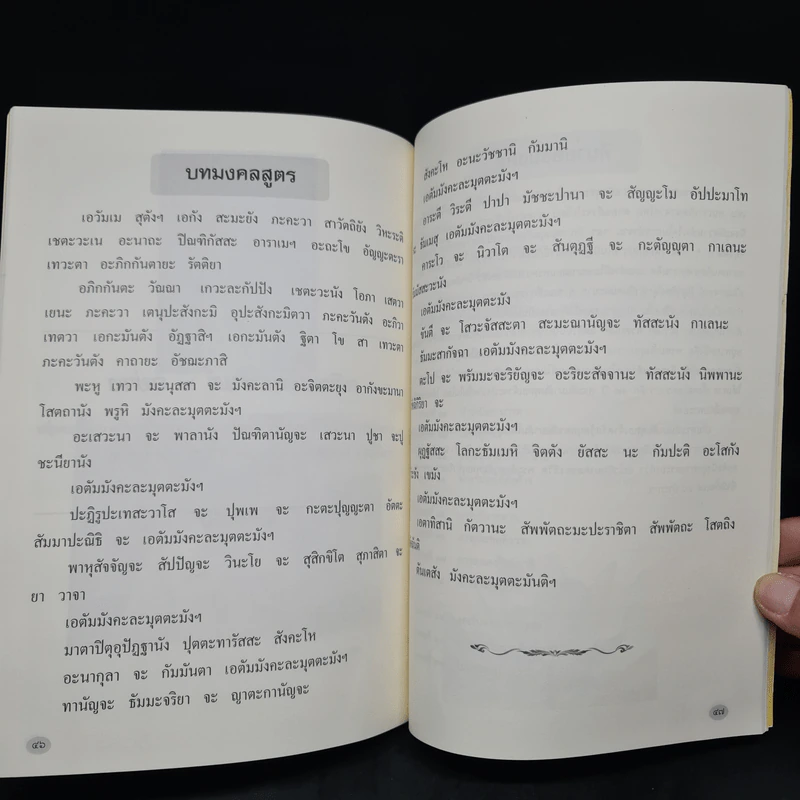 บทมงคลสูตร
เอวัมเม สุตังฯ เอกัง สะมะยัง ภะคะวา สาวัตถิยัง วิหะระติ
เชตะวะเน อะนาถะ ปิณฑิกัสสะ อาราเมฯ อะถะโข อัญญะตะรา
เทวะตา อะภิกกันตายะ รัตติยา
อภิกกันตะ วัณณา เกวะละกัปปัง เชตะวะนัง โอภา เสตวา
เยนะ ภะคะวา เตนุปะสังกะมิ อุปะสังกะมิตวา ภะคะวันตัง อะภิวา
เทตวา เอกะมันตัง อัฏฐาสิฯ เอกะมันตัง ฐิตา โข สา เทวะตา
ภะคะวันตัง คาถายะ อัชฌะภาสิ
พะหู เทวา มะนุสสา จะ มังคะลานิ อะจิตตะยุง อากังขะมานา
โสตถานัง พรูหิ มังคะละมุตตะมังฯ
อะเสวะนา จะ พาลานัง ปัณฑิตานัญจะ เสวะนา ปูชา จะปู
ชะนียานัง
เอตัมมังคะละมุตตะมังฯ
ปะฏิรูปะเทสะวาโส จะ ปุพเพ จะ กะตะปุญญะตา อัตตะ
สัมมาปะณิธิ จะ เอตัมมังคะละมุตตะมังฯ
พาหุสัจจัญจะ สัปปัญจะ วินะโย จะ สุสิกขิโต สุภาสิตา จะ
ยา วาจา
เอตัมมังคะละมุตตะมังฯ
มาตาปิตุอุปัฏฐานัง ปุตตะทารัสสะ สังคะโห
อะนากุลา จะ กัมมันตา เอตัมมังคะละมุตตะมังฯ
ทานัญจะ ธัมมะจริยา จะ ญาตะกานัญจะ
๔๖
สังคะโห อะนะวัชชานิ กัมมานิ
เอตัมมังคะละมุตตะมังฯ
อาระตี วิระตี ปาปา มัชชะปานา จะ สัญญะโม อัปปะมาโท
จะ ธัมเมสุ เอตัมมังคะละมุตตะมังฯ
คาระโว จะ นิวาโต จะ สันตุฏฐี จะ กะตัญญุตา กาเลนะ
เอตัมมังคะละมุตตะมัง
ขันตี จะ โสวะจัสสะตา สะมะณานัญจะ ทัสสะนัง กาเลนะ
ธัมมะสากัจฉา เอตัมมังคะละมุตตะมังฯ
ตะโป จะ พรัมมะจะริยัญจะ อะริยะสัจจานะ ทัสสะนัง นิพพานะ
จะ
เอตัมมังคะละมุตตะมังฯ
โลกะธัมเมหิ จิตตัง ยัสสะ นะ กัมปะติ อะโสกัง
เขมัง
เอตัมมังคะละมุตตะมังฯ
เอตาทิสานิ กัตวานะ สัพพัตถะมะปะราชิตา สัพพัตถะ โสตถิง
มังคะละมุตตะมันติฯ
๔๗